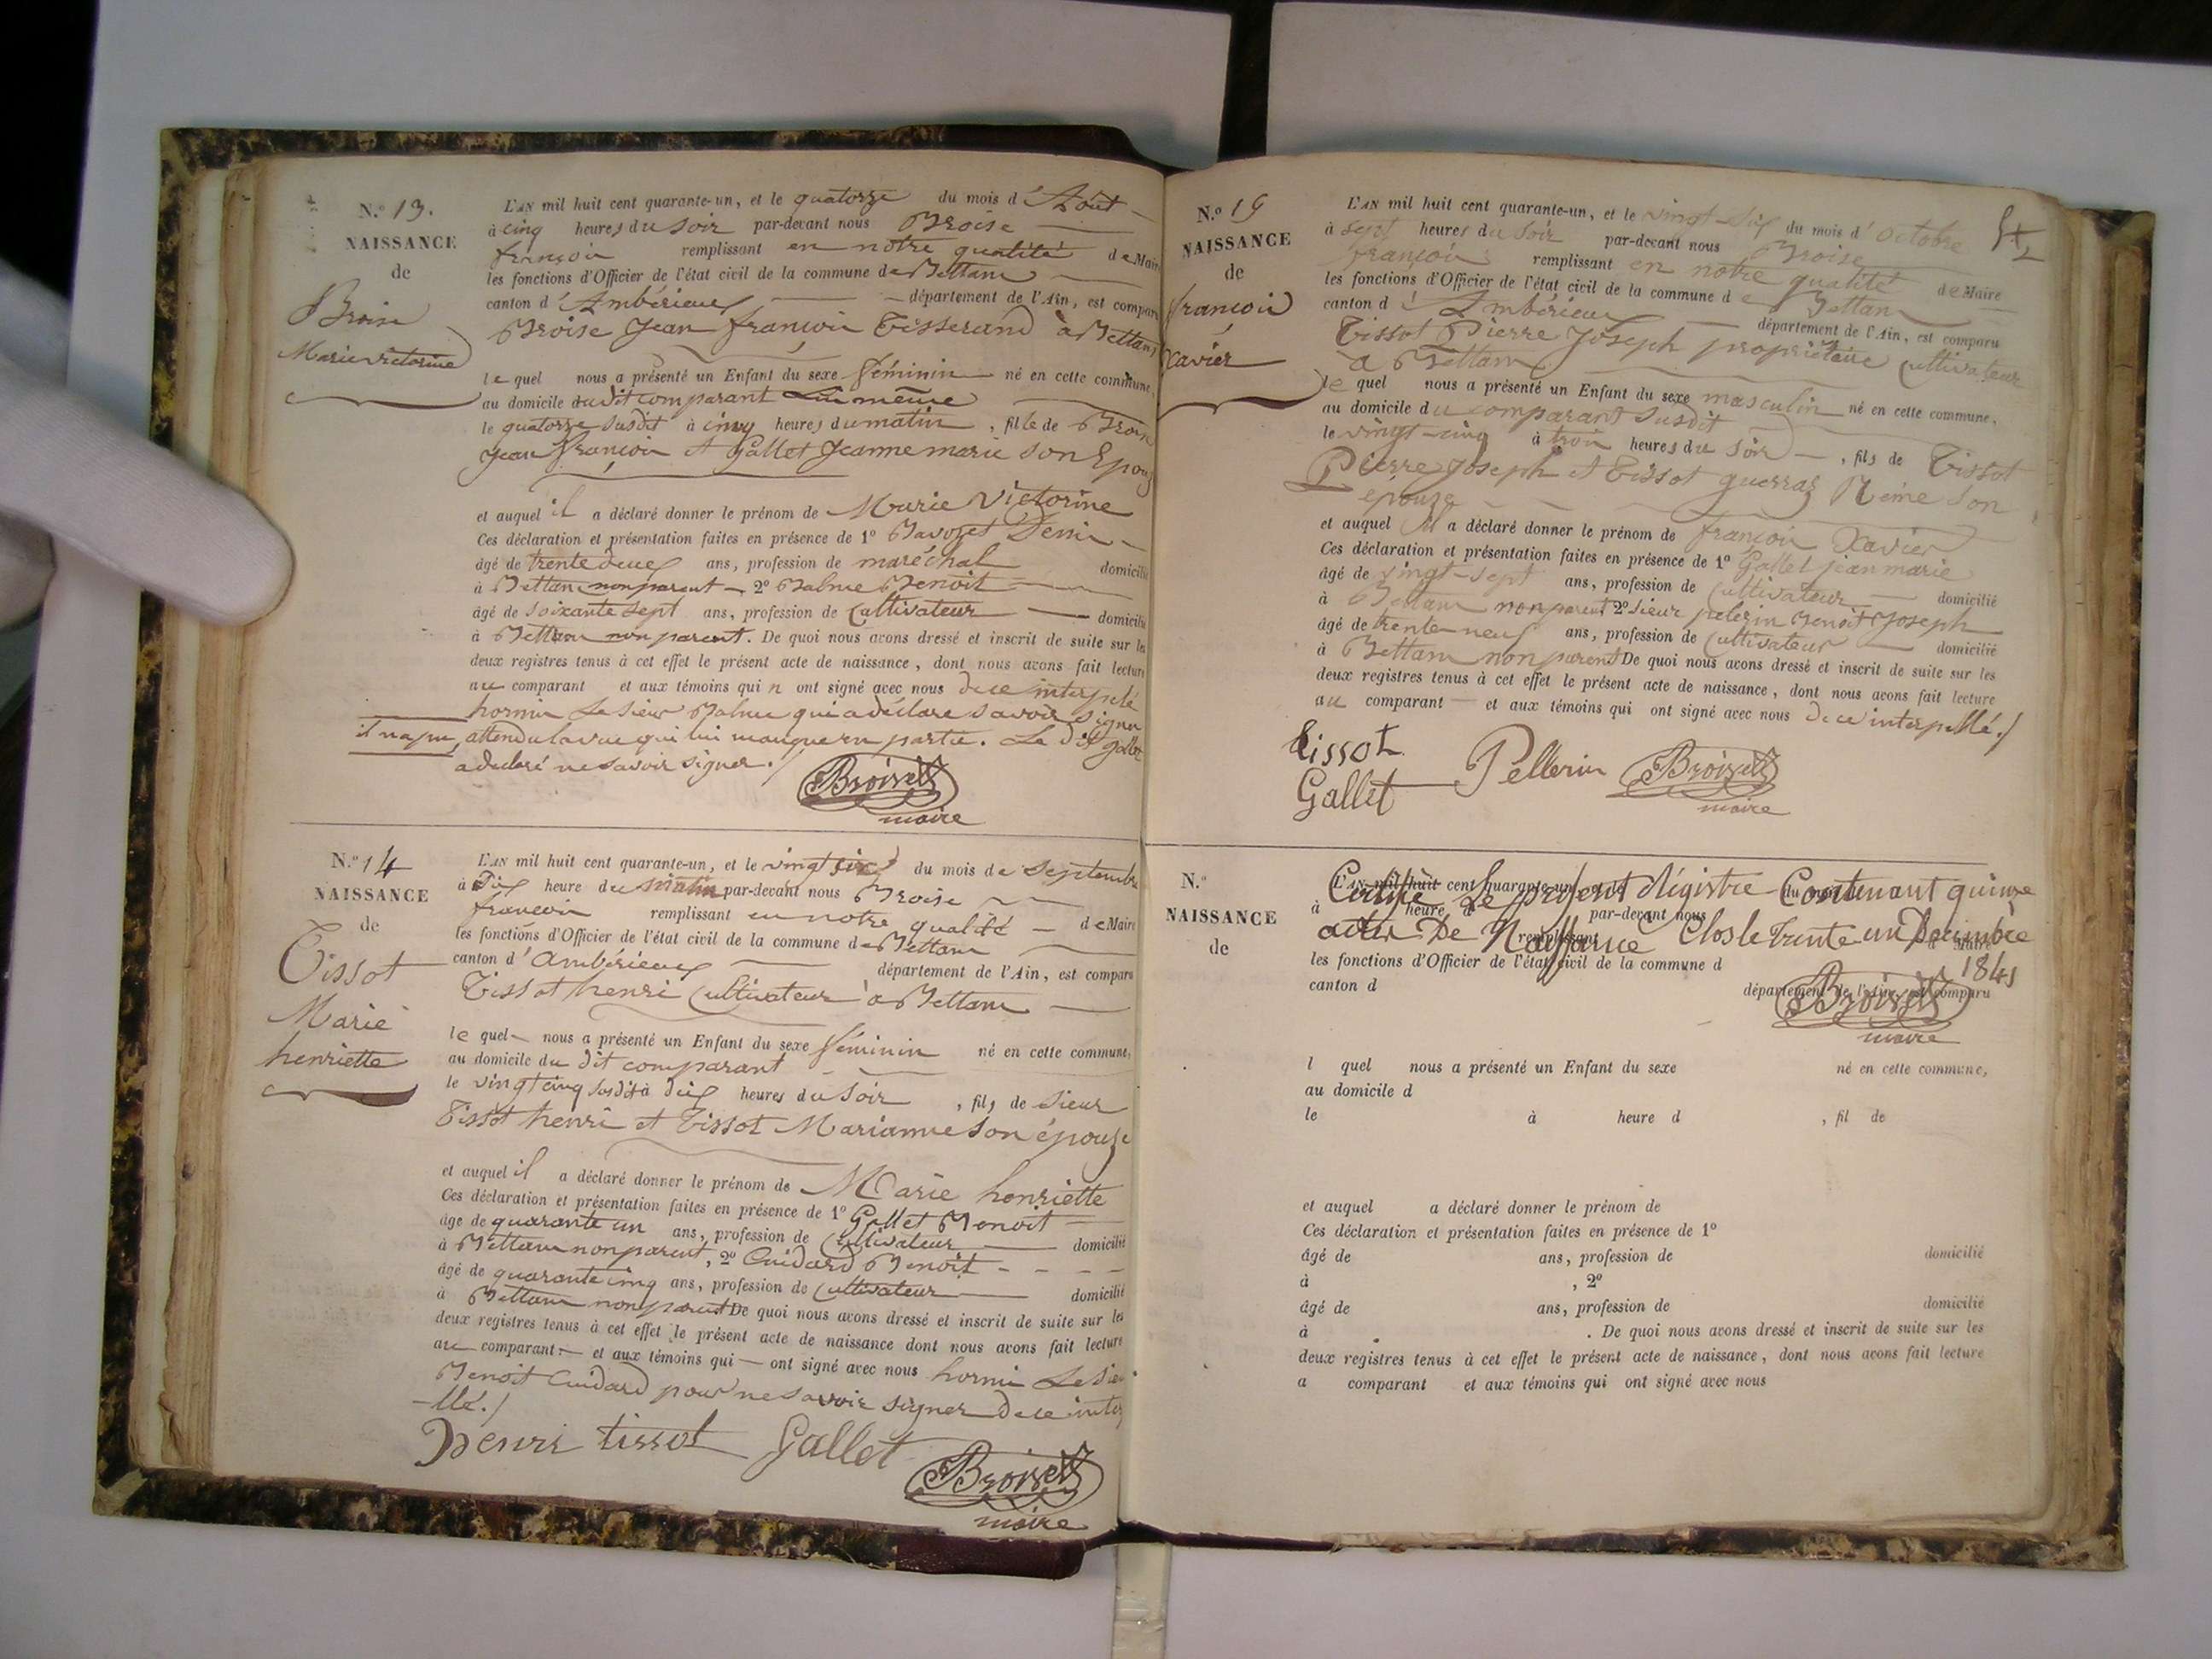 N.º 13.
NAISSANCE
de
Broise
Marie victorine
L'AN mil huit cent quarante-un, et le quatorze du mois d'Août
à cinq heures du soir par-devant nous Broise
françois remplissant en notre qualité de Maire
les fonctions d'Officier de l'état civil de la commune de Bettans
canton d'Ambérieux département de l'Ain, est comparu
Broise Jean françois Tisserand à Bettans
le quel nous a présenté un Enfant du sexe féminin né en cette commune,
au domicile dudit comparant lui même
le quatorze susdit à cinq heures du matin, fille de Broise
Jean françois et Gallet Jeanne marie son Epouz
et auquel il a déclaré donner le prénom de Marie Victorine
Ces déclaration et présentation faites en présence de 1º Savoyet Denis
âgé de trente deux ans, profession de maréchal domicilié
à Bettans non parent 2º Balme Benoit
âgé de soixante sept ans, profession de Cultivateur domicilié
à Bettans non parent. De quoi nous avons dressé et inscrit de suite sur les
deux registres tenus à cet effet le présent acte de naissance, dont nous avons fait lecture
au comparant et aux témoins qui n ont signé avec nous de ce interpelé
hormis Le sieur Balme qui a déclaré savoir signer
il na pu, attendu la vue qui lui manque en partie. Le dit
a declaré ne savoir signer./
Broise
maire
N.º 14
NAISSANCE
de
Tissot
Marie
henriette
L'AN mil huit cent quarante-un, et le vingt six du mois de Septembre
à dix heure du matin par-devant nous Broise
françois remplissant en notre qualité de Maire
les fonctions d'Officier de l'état civil de la commune de Bettans
canton d'ambérieux département de l'Ain, est comparu
Tissot henri Cultivateur à Bettans
le quel nous a présenté un Enfant du sexe féminin né en cette commune,
au domicile du dit comparant
le vingt cinq susdit à dix heures du soir, fils de Sieur
Tissot henri et Tissot Marianne son épouze
et auquel il a déclaré donner le prénom de Marie henriette
Ces déclaration et présentation faites en présence de 1º Gallet Benoit
âgé de quarante un ans, profession de Cultivateur domicilié
à Bettans non parent, 2º Cuidard Benoit
âgé de quarante cinq ans, profession de Cultivateur domicilié
à Bettans non parent De quoi nous avons dressé et inscrit de suite sur les
deux registres tenus à cet effet le présent acte de naissance dont nous avons fait lecture
au comparant et aux témoins qui ont signé avec nous hormis Le Sieur
Benoit Cuidard pour ne savoir signer de ce inter
-llé./
henri tissot Gallet
Broise
maire
N.º 15
NAISSANCE
de
françois
Xavier
L'AN mil huit cent quarante-un, et le vingt-six du mois d'octobre
à sept heures du soir par-devant nous Broise
françois remplissant en notre qualité de Maire
les fonctions d'Officier de l'état civil de la commune de Bettans
canton d'Ambérieux département de l'Ain, est comparu
Tissot Pierre Joseph propriétaire Cultivateur
à Bettans
le quel nous a présenté un Enfant du sexe masculin né en cette commune,
au domicile du comparant susdit
le vingt-cinq à trois heures du soir, fils de Tissot
Pierre Joseph et Tissot guerraz Reine son
épouze
et auquel il a déclaré donner le prénom de françois Xavier
Ces déclaration et présentation faites en présence de 1º Gallet jean marie
âgé de vingt-sept ans, profession de Cultivateur domicilié
à Bettans non parent 2º Sieur pelerin Benoit Joseph
âgé de trente-neuf ans, profession de Cultivateur domicilié
à Bettans non parent De quoi nous avons dressé et inscrit de suite sur les
deux registres tenus à cet effet le présent acte de naissance, dont nous avons fait lecture
au comparant et aux témoins qui ont signé avec nous de ce interpellé./
tissot
Gallet Pellerin Broise
maire
N.º
NAISSANCE
de
L'AN mil huit cent quarante-un, et le du mois d
Certifié Le présent Régistre Contenant quinze
à heure d par-devant nous
actes De Naissance Clos le Trente un Décembre
remplissant d Maire
1841
les fonctions d'Officier de l'état civil de la commune d
canton d département de l'Ain, est comparu
Broise
maire
l quel nous a présenté un Enfant du sexe né en cette commune,
au domicile d
le à heure d , fil de
et auquel a déclaré donner le prénom de
Ces déclaration et présentation faites en présence de 1º
âgé de ans, profession de domicilié
à , 2º
âgé de ans, profession de domicilié
à . De quoi nous avons dressé et inscrit de suite sur les
deux registres tenus à cet effet le présent acte de naissance, dont nous avons fait lecture
a comparant et aux témoins qui ont signé avec nous